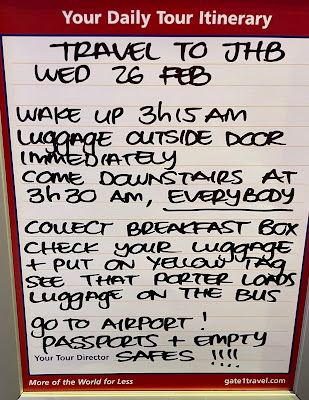 Your Daily Tour Itinerary
TRAVEL TO JHB
WED 26 FEB
WAKE UP 3h15 AM
LUGGAGE OUTSIDE DOOR
IMMEDIATELY
COME DOWNSTAIRS AT
3h30 AM, EVERYBODY
COLLECT BREAKFAST BOX
CHECK YOUR LUGGAGE
+ PUT ON YELLOW TAG
SEE THAT PORTER LOADS
LUGGAGE ON THE BUS
GO TO AIRPORT !
PASSPORTS + EMPTY
Your Tour Director SAFES !!!!
More of the World for Less gate1travel.com